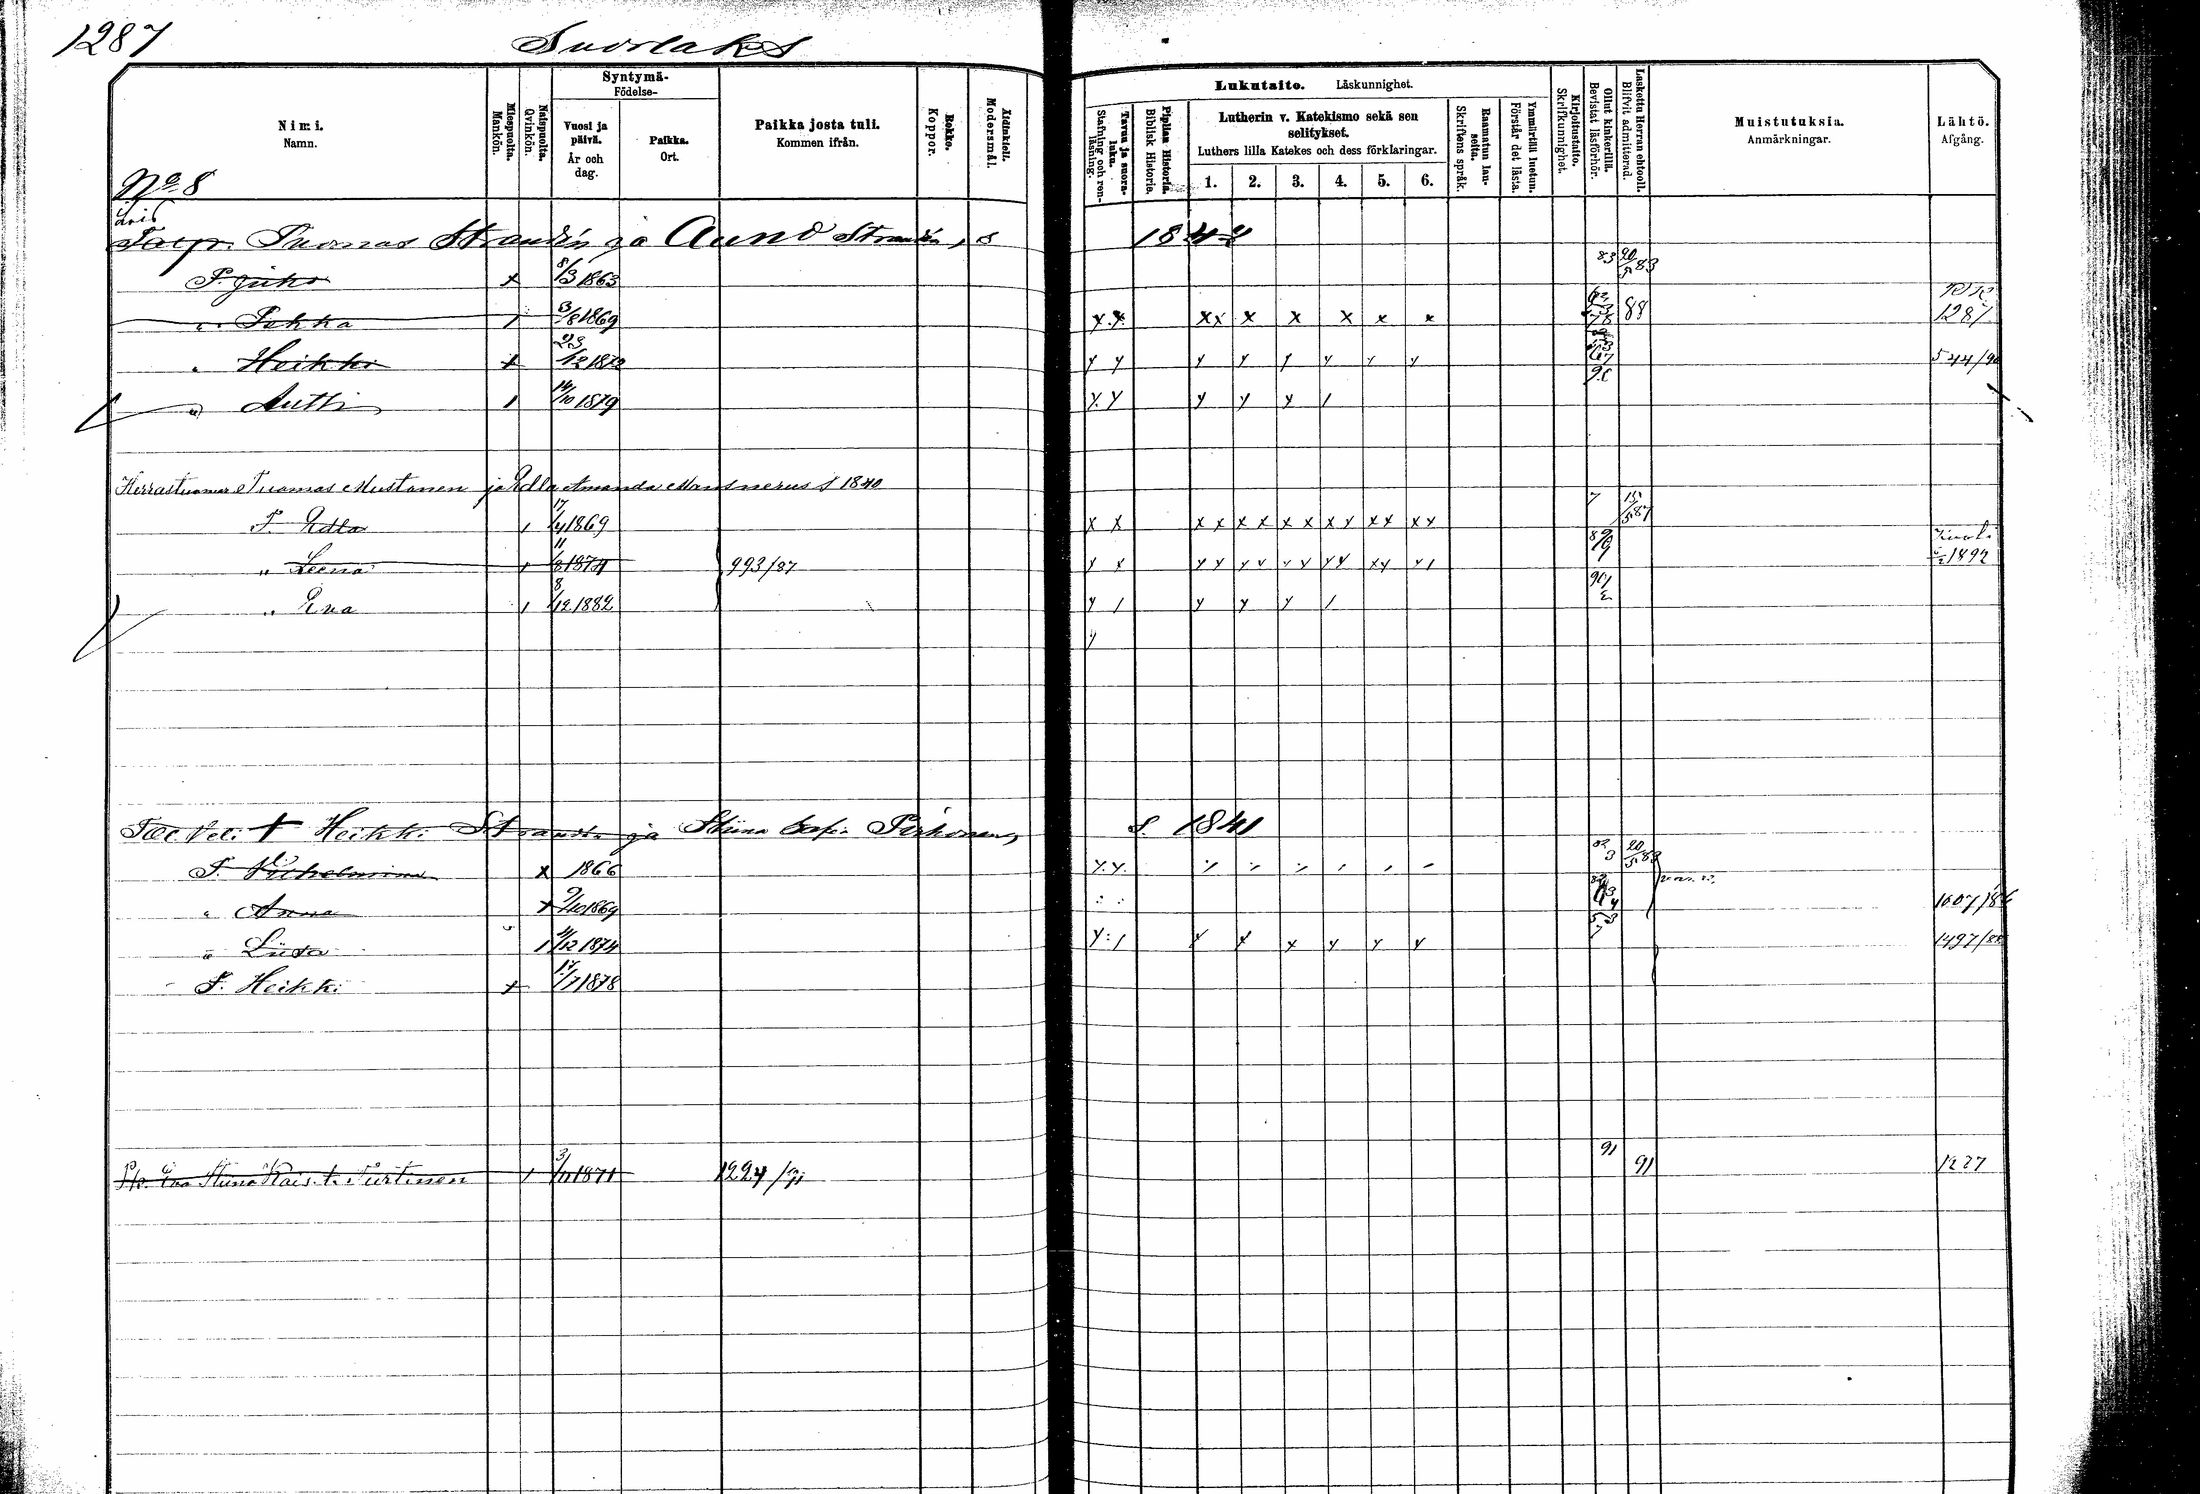 1287 Suorlaks
Nimi.
Namn.
Miespuolta.
Mankön.
Naispuolta.
Qvinkön.
Syntymä-
Födelse-
Vuosi ja päivä.
År och dag.
Paikka.
Ort.
Paikka josta tuli.
Kommen ifrån.
Rokko.
Koppor.
Äidinkieli.
Modersmål.
Lukutaito. Läskunnighet.
Tavuu ja suora-luku.
Stafning och ren-läsning.
Piplian Historia.
Biblisk Historie.
Lutherin v. Katekismo sekä sen selitykset.
Luthers lilla Katekes och dess förklaringar.
1. 2. 3. 4. 5. 6.
Raamatun lau-seita.
Skriftens språk.
Ymmärtäli luetun.
Förstår det lästa.
Kirjoitustaito.
Skrifkunnighet.
Ollut kinkerillä.
Bevistat läsförhör.
Laskettu Herran ehtooll.
Blifvit admitterad.
Muistutuksia.
Anmärkningar.
Lähtö.
Afgång.
No 8
Tuomas Strandén ja Anno Strandén, s 1842
P. Juho x 8/3 1863 83 20/5 83
" Pekka 1 3/8 1869 x x xx x x x x x 88 1287
" Heikki x 23/12 1872 y y y y y y y y 544/90
" Antti 1 14/10 1879 y y y y y 1
Herrastuomar Tuomas Mustonen ja Edla Amanda Mansnerus s 1840
T. Edla 1 17/4 1869 x x x x x x x x x y x x x x 7 15/5 87
" Leena 1 11/8 1871 993/87 1892
" Eva 1 8/12 1882 y 1 y y y 1
Heikki Strandén ja Stiina Sofi Pirhonen, s. 1841
T. Vilhelmina x 1866 y. y. 20/5 83
" Anna x 9/10 1869 1007/86
" Liisa 1 4/12 1874 y : 1 y y x y y y 1497/88
P. Heikki x 17/7 1878
Eva Stiina Kais. t. Turtinen 1 3/11 1871 1224/91 91 91 1227